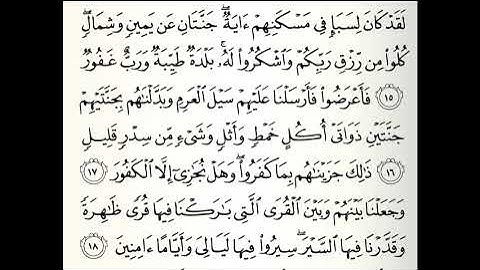 لَقَدْ كَانَ لِسَبَإٍ فِي مَسْكَنِهِمْ ءَايَةٌ ۖ جَنَّتَانِ عَن يَمِينٍ وَشِمَالٍ ۖ
كُلُوا۟ مِن رِّزْقِ رَبِّكُمْ وَٱشْكُرُوا۟ لَهُۥ ۚ بَلْدَةٌ طَيِّبَةٌ وَرَبٌّ غَفُورٌ
١٥ فَأَعْرَضُوا۟ فَأَرْسَلْنَا عَلَيْهِمْ سَيْلَ ٱلْعَرِمِ وَبَدَّلْنَٰهُم بِجَنَّتَيْهِمْ
جَنَّتَيْنِ ذَوَاتَىْ أُكُلٍ خَمْطٍ وَأَثْلٍ وَشَىْءٍ مِّن سِدْرٍ قَلِيلٍ
١٦ ذَٰلِكَ جَزَيْنَٰهُم بِمَا كَفَرُوا۟ ۖ وَهَلْ نُجَٰزِىٓ إِلَّا ٱلْكَفُورَ ١٧
وَجَعَلْنَا بَيْنَهُمْ وَبَيْنَ ٱلْقُرَى ٱلَّتِى بَٰرَكْنَا فِيهَا قُرًى ظَٰهِرَةً
وَقَدَّرْنَا فِيهَا ٱلسَّيْرَ ۖ سِيرُوا۟ فِيهَا لَيَالِىَ وَأَيَّامًا ءَامِنِينَ ١٨